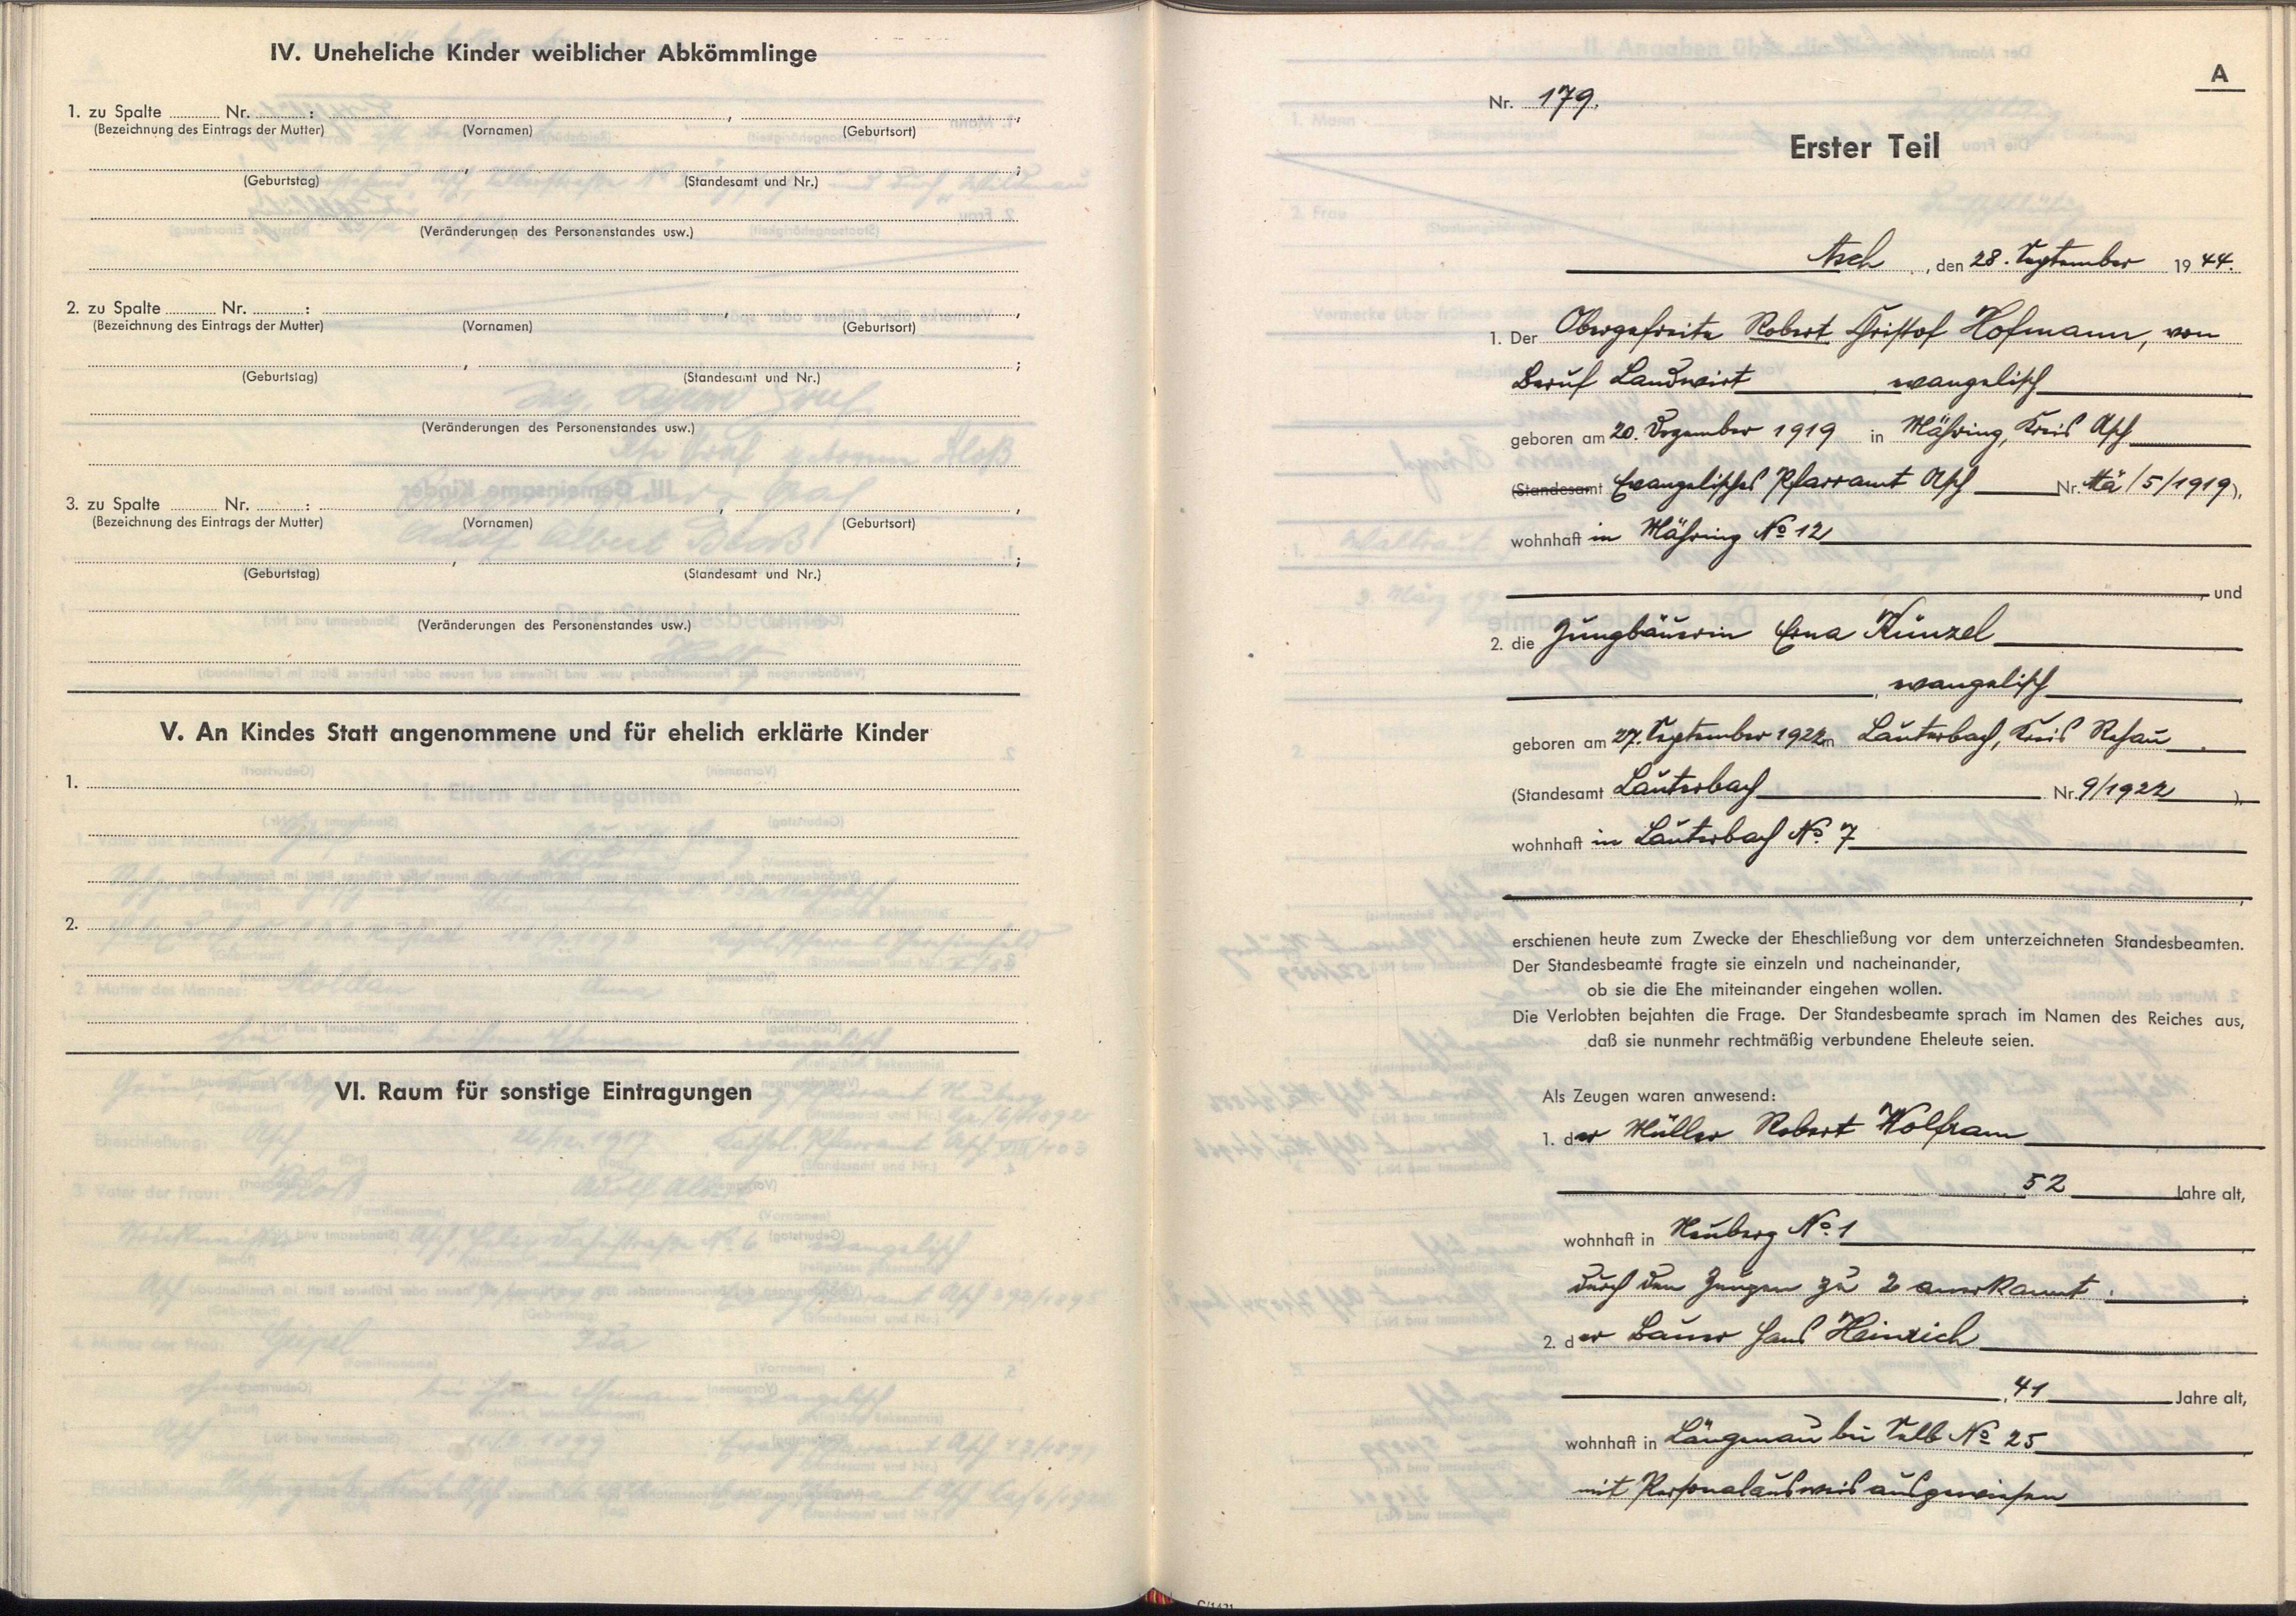 IV. Uneheliche Kinder weiblicher Abkömmlinge
1. zu Spalte ........ Nr. ........ :
(Bezeichnung des Eintrags der Mutter) (Vornamen) (Geburtsort)
(Geburtstag) (Standesamt und Nr.)
(Veränderungen des Personenstandes usw.)
2. zu Spalte ........ Nr. ........ :
(Bezeichnung des Eintrags der Mutter) (Vornamen) (Geburtsort)
(Geburtstag) (Standesamt und Nr.)
(Veränderungen des Personenstandes usw.)
3. zu Spalte ........ Nr. ........ :
(Bezeichnung des Eintrags der Mutter) (Vornamen) (Geburtsort)
(Geburtstag) (Standesamt und Nr.)
(Veränderungen des Personenstandes usw.)
V. An Kindes Statt angenommene und für ehelich erklärte Kinder
1.
2.
VI. Raum für sonstige Eintragungen
A
Nr. 179.
Erster Teil
Asch, den 28. September 1944.
1. Der Obergefreite Robert Christof Hofmann, von
Beruf Landwirt evangelisch
geboren am 20. Dezember 1919 in Mähring, Kreis Asch
(Standesamt Evangelisches Pfarramt Asch Nr. Mä/5/1919),
wohnhaft in Mähring No 12
, und
2. die Jungbäuerin Erna Künzel
, evangelisch
geboren am 27. September 1922 in Lauterbach, Kreis Rehau
(Standesamt Lauterbach Nr. 9/1922),
wohnhaft in Lauterbach No. 7
erschienen heute zum Zwecke der Eheschließung vor dem unterzeichneten Standesbeamten.
Der Standesbeamte fragte sie einzeln und nacheinander,
ob sie die Ehe miteinander eingehen wollen.
Die Verlobten bejahten die Frage. Der Standesbeamte sprach im Namen des Reiches aus,
daß sie nunmehr rechtmäßig verbundene Eheleute seien.
Als Zeugen waren anwesend:
1. der Müller Robert Wolfram
, 52 Jahre alt,
wohnhaft in Neuberg No. 1
durch den Zeugen zu 2 anerkannt.
2. der Bauer Hans Heinrich
, 41 Jahre alt,
wohnhaft in Längenau bei Selb No 25
mit Personalausweis ausgewiesen